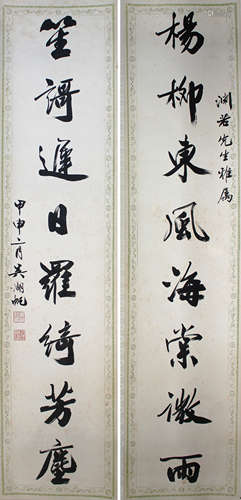 楊柳東風海棠微雨
渊若先生雅属
笙謌遲日羅綺芳塵
甲申六月吳湖帆